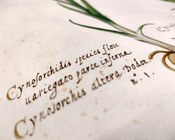 Cynosorchidis species flore
uariegato parce inferna
Cynosorchis altera Dodon